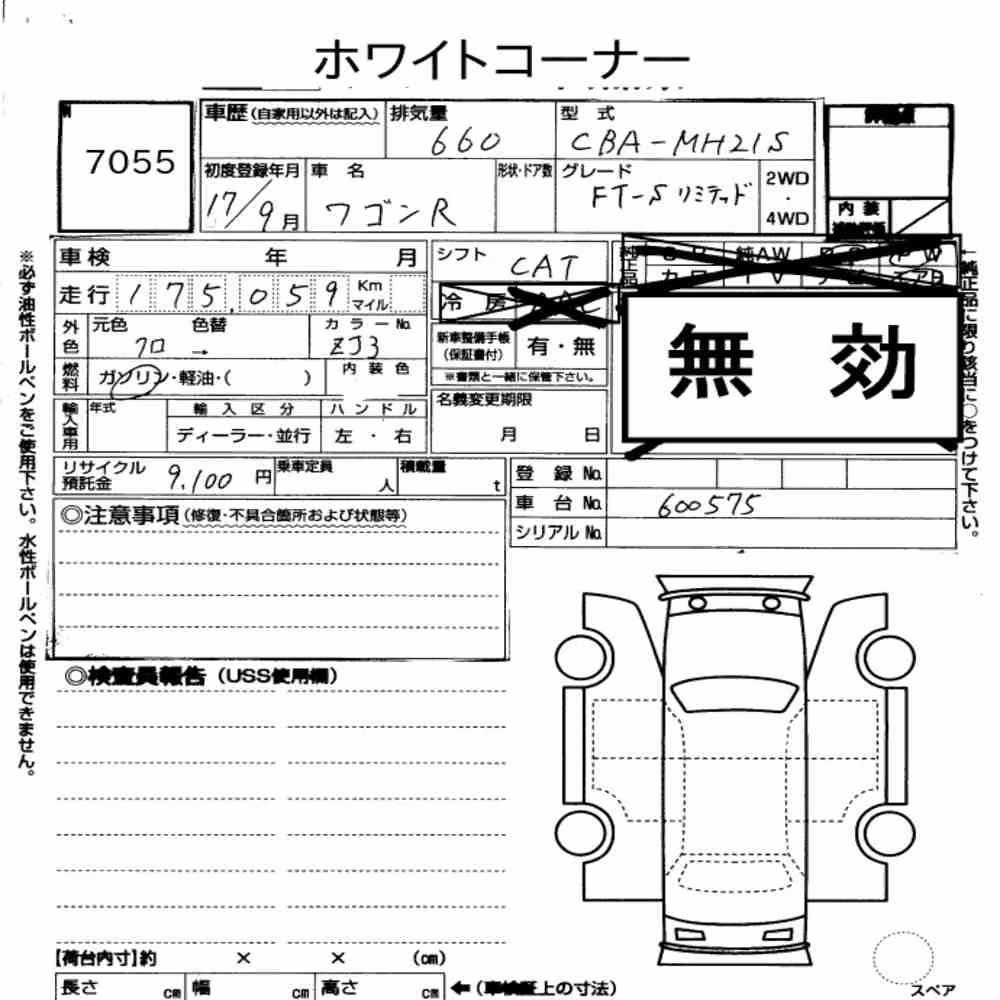 ホワイトコーナー
7055
車歴 (自家用以外は記入) 排気量 660 型式 CBA-MH21S
初度登録年月 17/9月 車名 ワゴンR 形状・ドア数 グレード FT-S リミテッド 2WD・4WD
内装
車検 年 月 シフト CAT
走行 175,059 Km マイル 冷房
外色 元色 クロ → 色替 カラーNo. ZJ3
新車整備手帳 (保証書付) 有・無
※書類と一緒に保管下さい。
燃料 ガソリン・軽油・( ) 内装色
無効
輸入車用 年式 輸入区分 ハンドル
ディーラー・並行 左・右
名義変更期限 月 日
リサイクル預託金 9,100円 乗車定員 人 積載量 t
登録No.
車台No. 600575
シリアルNo.
◎注意事項 (修復・不具合箇所および状態等)
◎検査員報告 (USS使用欄)
【荷台内寸】約 × × (cm)
長さ cm 幅 cm 高さ cm ←(車検証上の寸法)
スペア
※必ず油性ボールペンをご使用下さい。水性ボールペンは使用できません。
←純正品に限り該当に○をつけて下さい。